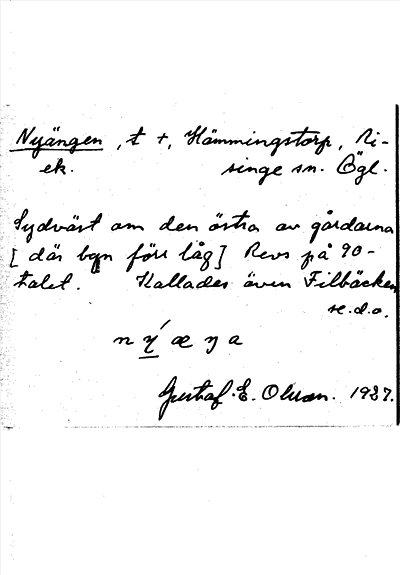 Nyängen, t +, Hämmingstorp, Ri-
ek. singe sn. Ögl.
Sydväst om den östra av gårdarna
[ där byn förr låg] Revs på 90-
talet. Kallades även Filbäcken
se. d. o.
n ý æ ŋ a
Gustaf. E. Olsson. 1927.